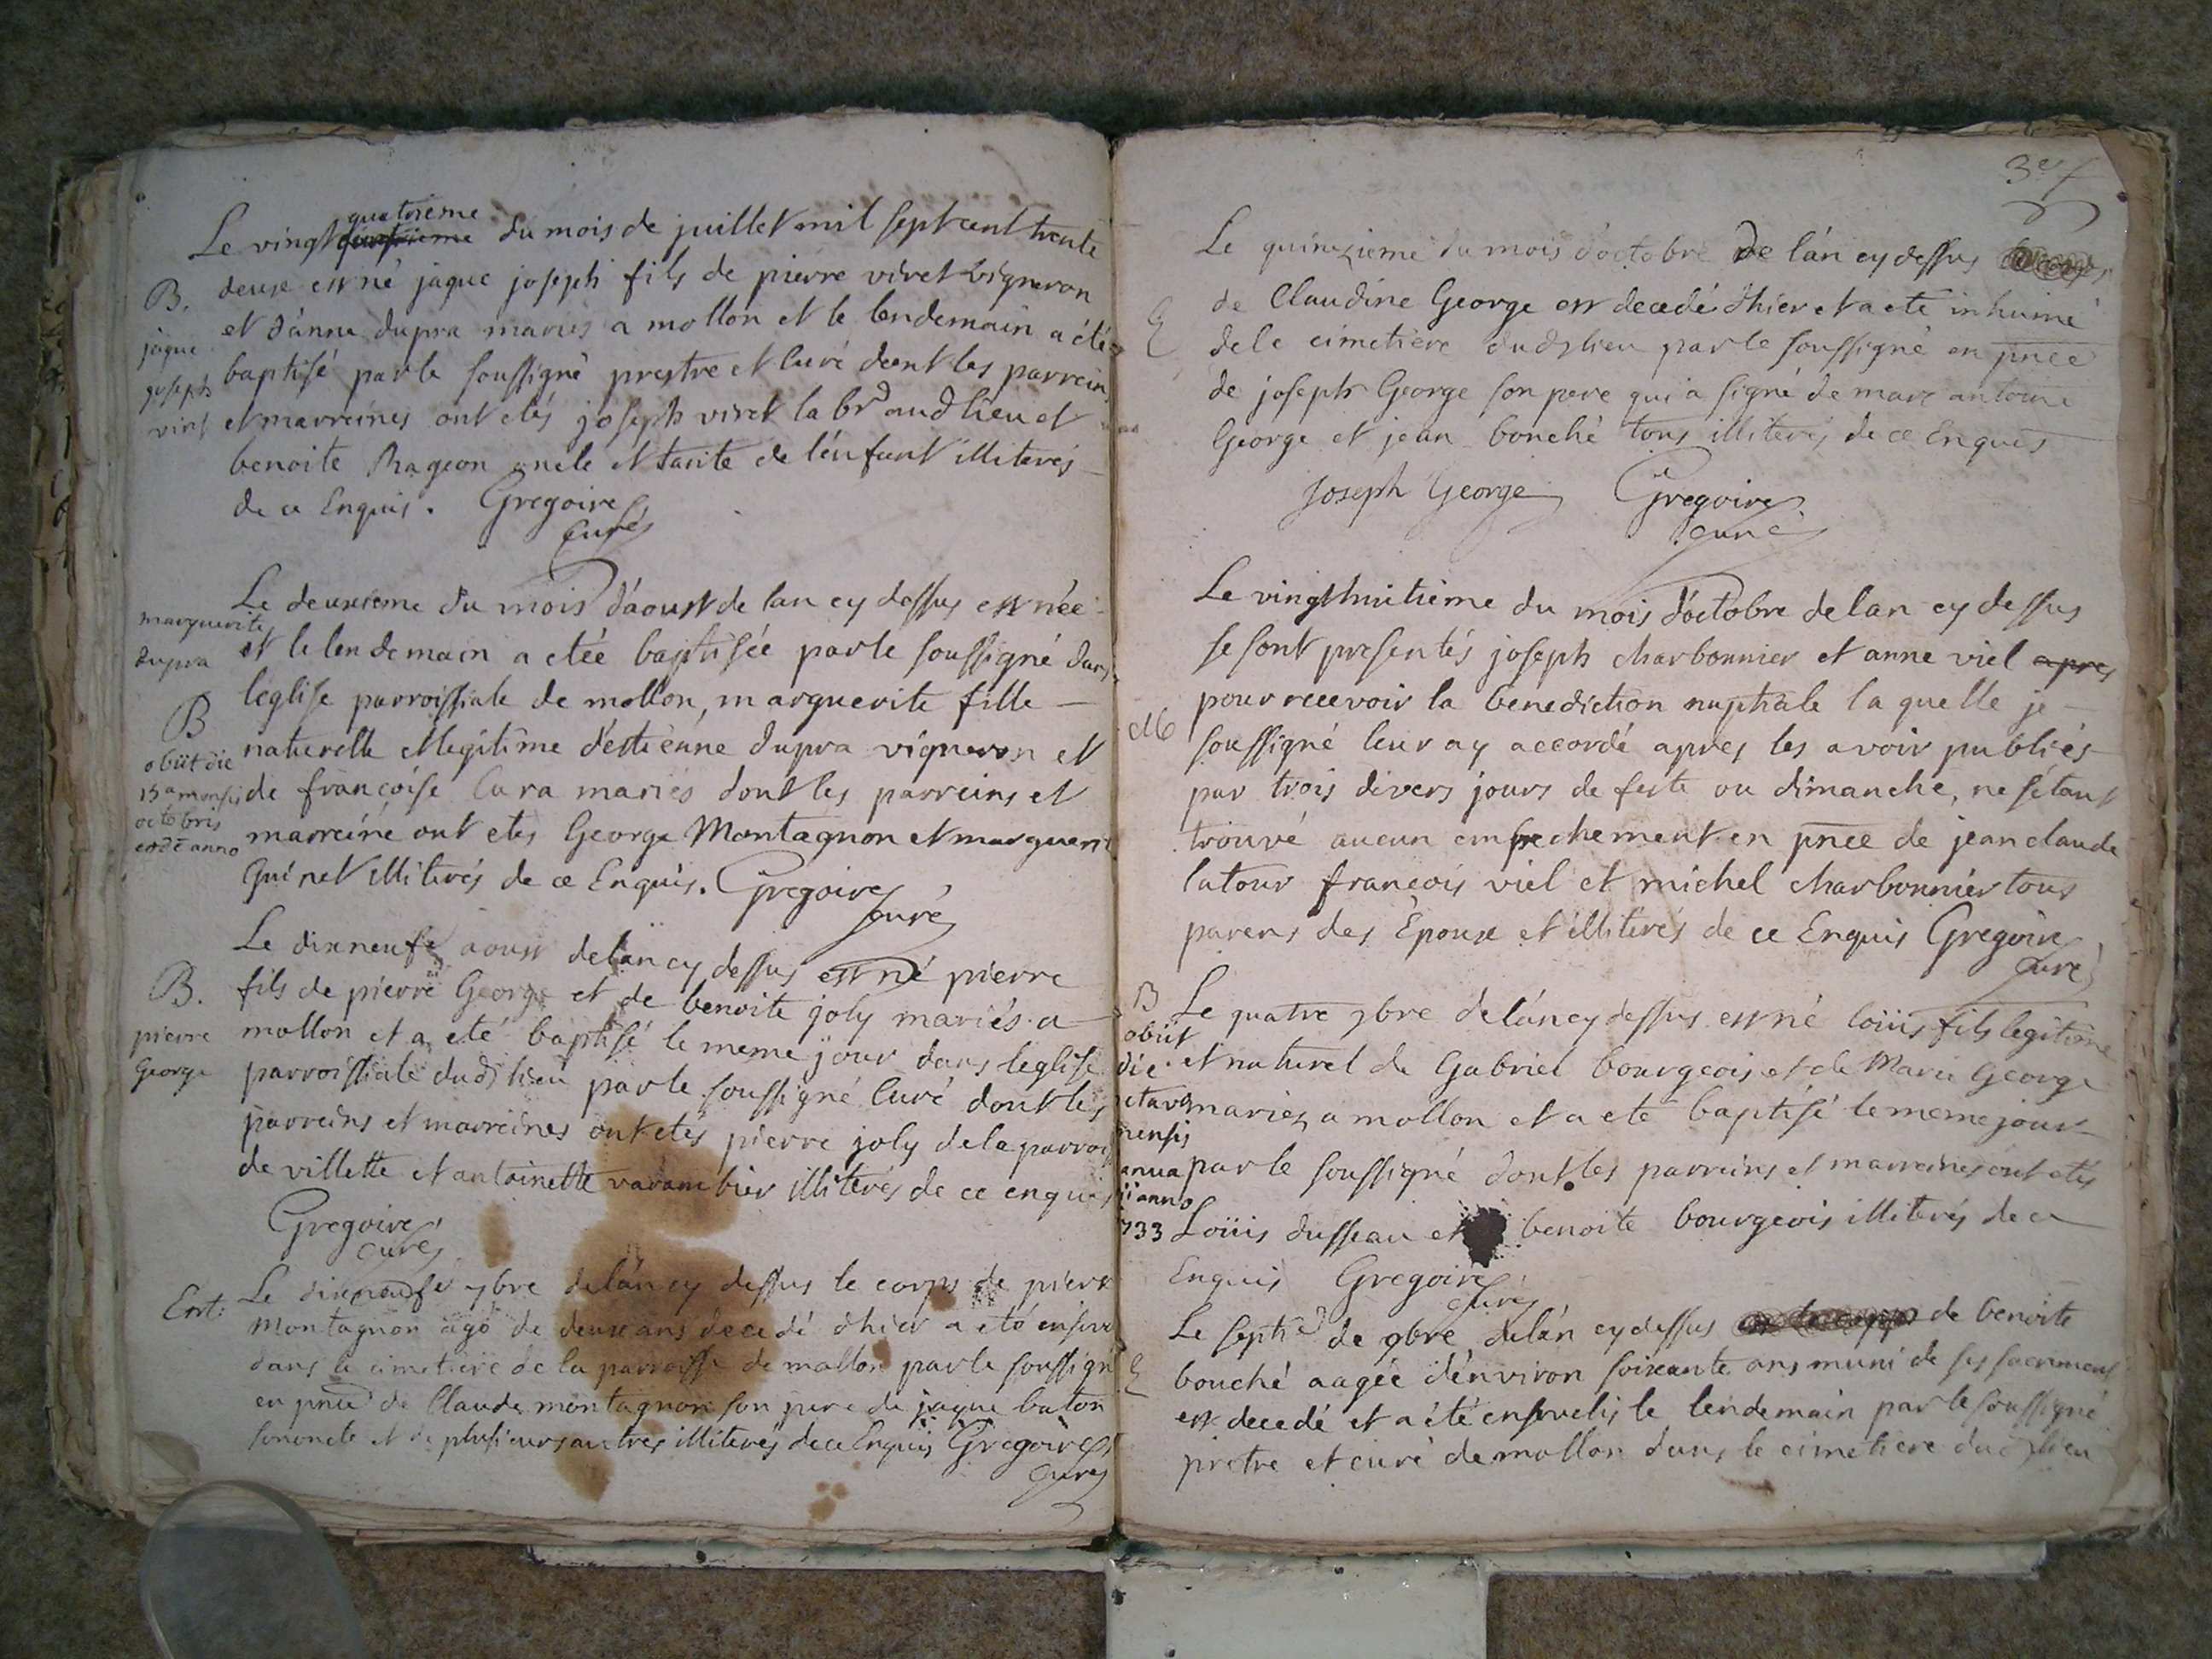 quatrieme
Le vingt quatrieme du mois de juillet mil sept cent trente
B. deux est né jaque joseph fils de pierre viret vigneron
et d'anne dupra mariés a mollon et le lendemain a été
jaque
joseph baptisé par le soussigné prestre et curé dont les parrein
viret et marreines ont etés joseph viret aud lieu et
benoite Rageon oncle et tante de l'enfant illiterés
de ce Enquis. Gregoire
curé
Le deuxieme du mois d'aoust de lan cy dessus est née
marguerite
dupra et le lendemain a etée baptisée par le soussigné dans
l'eglise parroissiale de mollon, marguerite fille
B
obiit die naturelle et legitime d'estienne dupra vigneron et
15a mensis de françoise Cara mariés dont les parreins et
octobris
eodē anno marreine ont etés George Montagnon et marguerit
Quinet illiterés de ce Enquis. Gregoire
curé
Le dixneufe aoust de lan cy dessus est né pierre
B. fils de pierre George et de benoite joly mariés a
pierre mollon et a eté baptisé le meme jour dans l'eglise
George parroissiale dud lieu par le soussigné Curé dont les
parreins et marreines ont etés pierre joly de la parrois
de villette et antoinette varambier illiterés de ce enquis
Gregoire
curé
Ent: Le dixneufe 7bre de lan cy dessus le corps de pierre
Montagnon agé de deux ans decedé d'hier a eté enseve
dans le cimetiere de la parroisse de mollon par le soussigné
en pnce de Claude montagnon son pere de jaque baton
son oncle et de plusieurs autres illiterés de ce Enquis Gregoire
curé
Le quinzieme du mois d'octobre de l'an cy dessus
E de Claudine George est decedé d'hier et a eté inhumé
cimetiere dud lieu par le soussigné en pnce
de joseph George son pere qui a signé de marc antoine
George et jean bouché tous illiterés de ce Enquis
Joseph George Gregoire
curé
Le vingthuitieme du mois d'octobre de lan cy dessus
se sont presentés joseph charbonnier et anne viel apres
pour recevoir la benediction nuptiale la quelle je
M soussigné leur ay accordé apres les avoir publiés
par trois divers jours de feste ou dimanche, ne s'étant
trouvé aucun empechement en pnce de jean claude
latour françois viel et michel charbonnier tous
parens des Epoux et illiterés de ce Enquis Gregoire
curé
B Le quatre 9bre de l'an cy dessus est né loüis fils legitime
obiit
die et naturel de Gabriel bourgeois et de Marie George
octava mariez a mollon et a eté baptisé le meme jour
mensis
janua par le soussigné dont les parreins et marreines ont etés
rii anno
1733 Loüis dusseau et benoite bourgeois illiterés de ce
Enquis Gregoire
curé
Le septie de 9bre de l'an cy dessus le corps de benoite
E bouché aagée d'environ soixante ans muni de ses sacrements
est decedé et a été ensevelis le lendemain par le soussigné
pretre et curé de mollon dans le cimetiere dud lieu